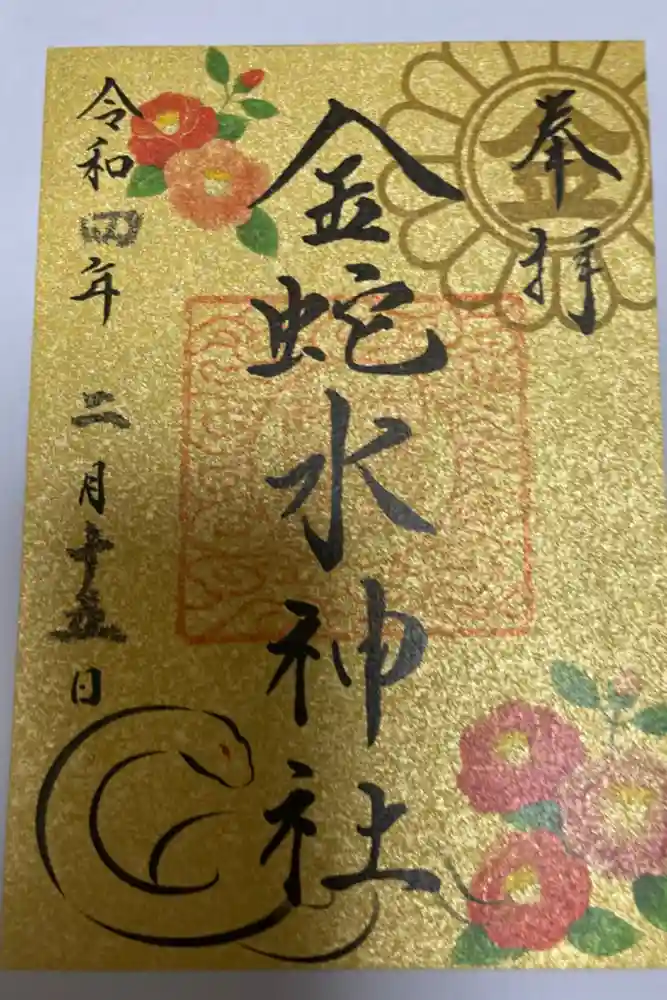 奉拝
金蛇水神社
令和四年二月十五日